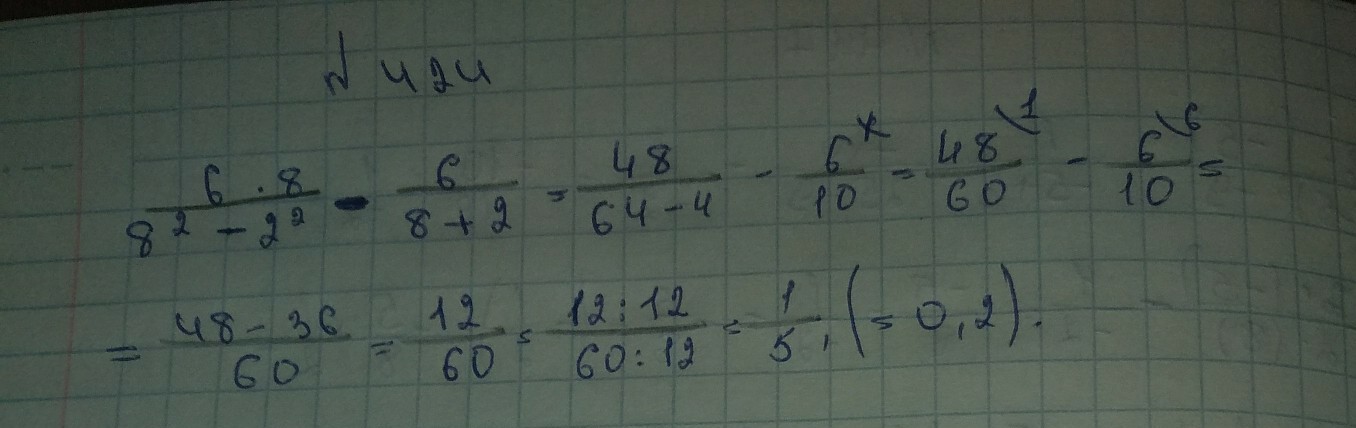 № 424
6·8/(8² - 2²) - 6/(8+2) = 48/(64-4) - 6/10 = 48\1/60 - 6\6/10 =
= (48-36)/60 = 12/60 = 12:12/60:12 = 1/5, (= 0,2).